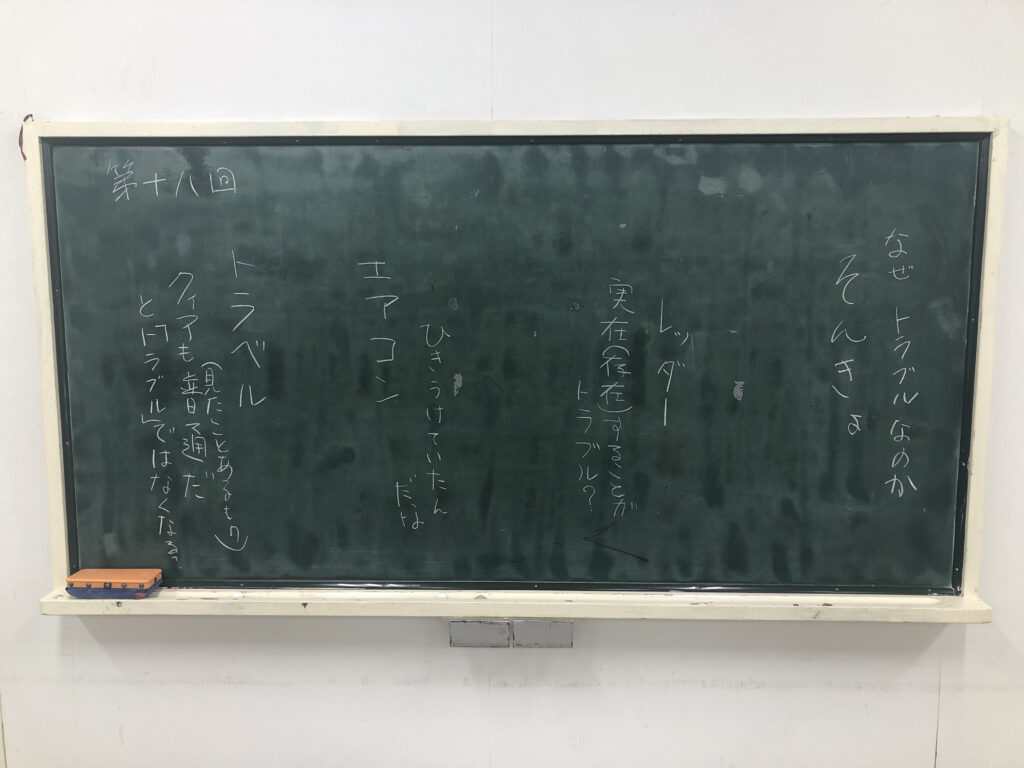 第十八回
なぜ トラブルなのか
そんきょ
レッダー
実在(存在)することが
トラブル?
ひきうけていたん
だよ
エアコン
トラベル
(見たことあるもの)
クィアも普通だ
と「トラブル」ではなくなる。